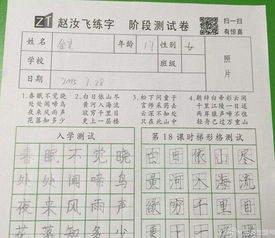 赵汝飞练字 阶段测试卷 扫一扫 有惊喜
姓名 年龄 17 性别 女
学校 班级 照片
日期 7.28
1.春眠不觉晓 2.白日依山尽 3.松下问童子 4.朝辞白帝彩云间
处处闻啼鸟 黄河入海流 言师采药去 千里江陵一日还
夜来风雨声 欲穷千里目 只在此山中 两岸猿声啼不住
花落知多少 更上一层楼 云深不知处 轻舟已过万重山
入学测试 第18课时梯形格测试
春眠不觉晓 白日依山尽
处处闻啼鸟 黄河入海流
夜来风雨声 欲穷千里目
花落知多少